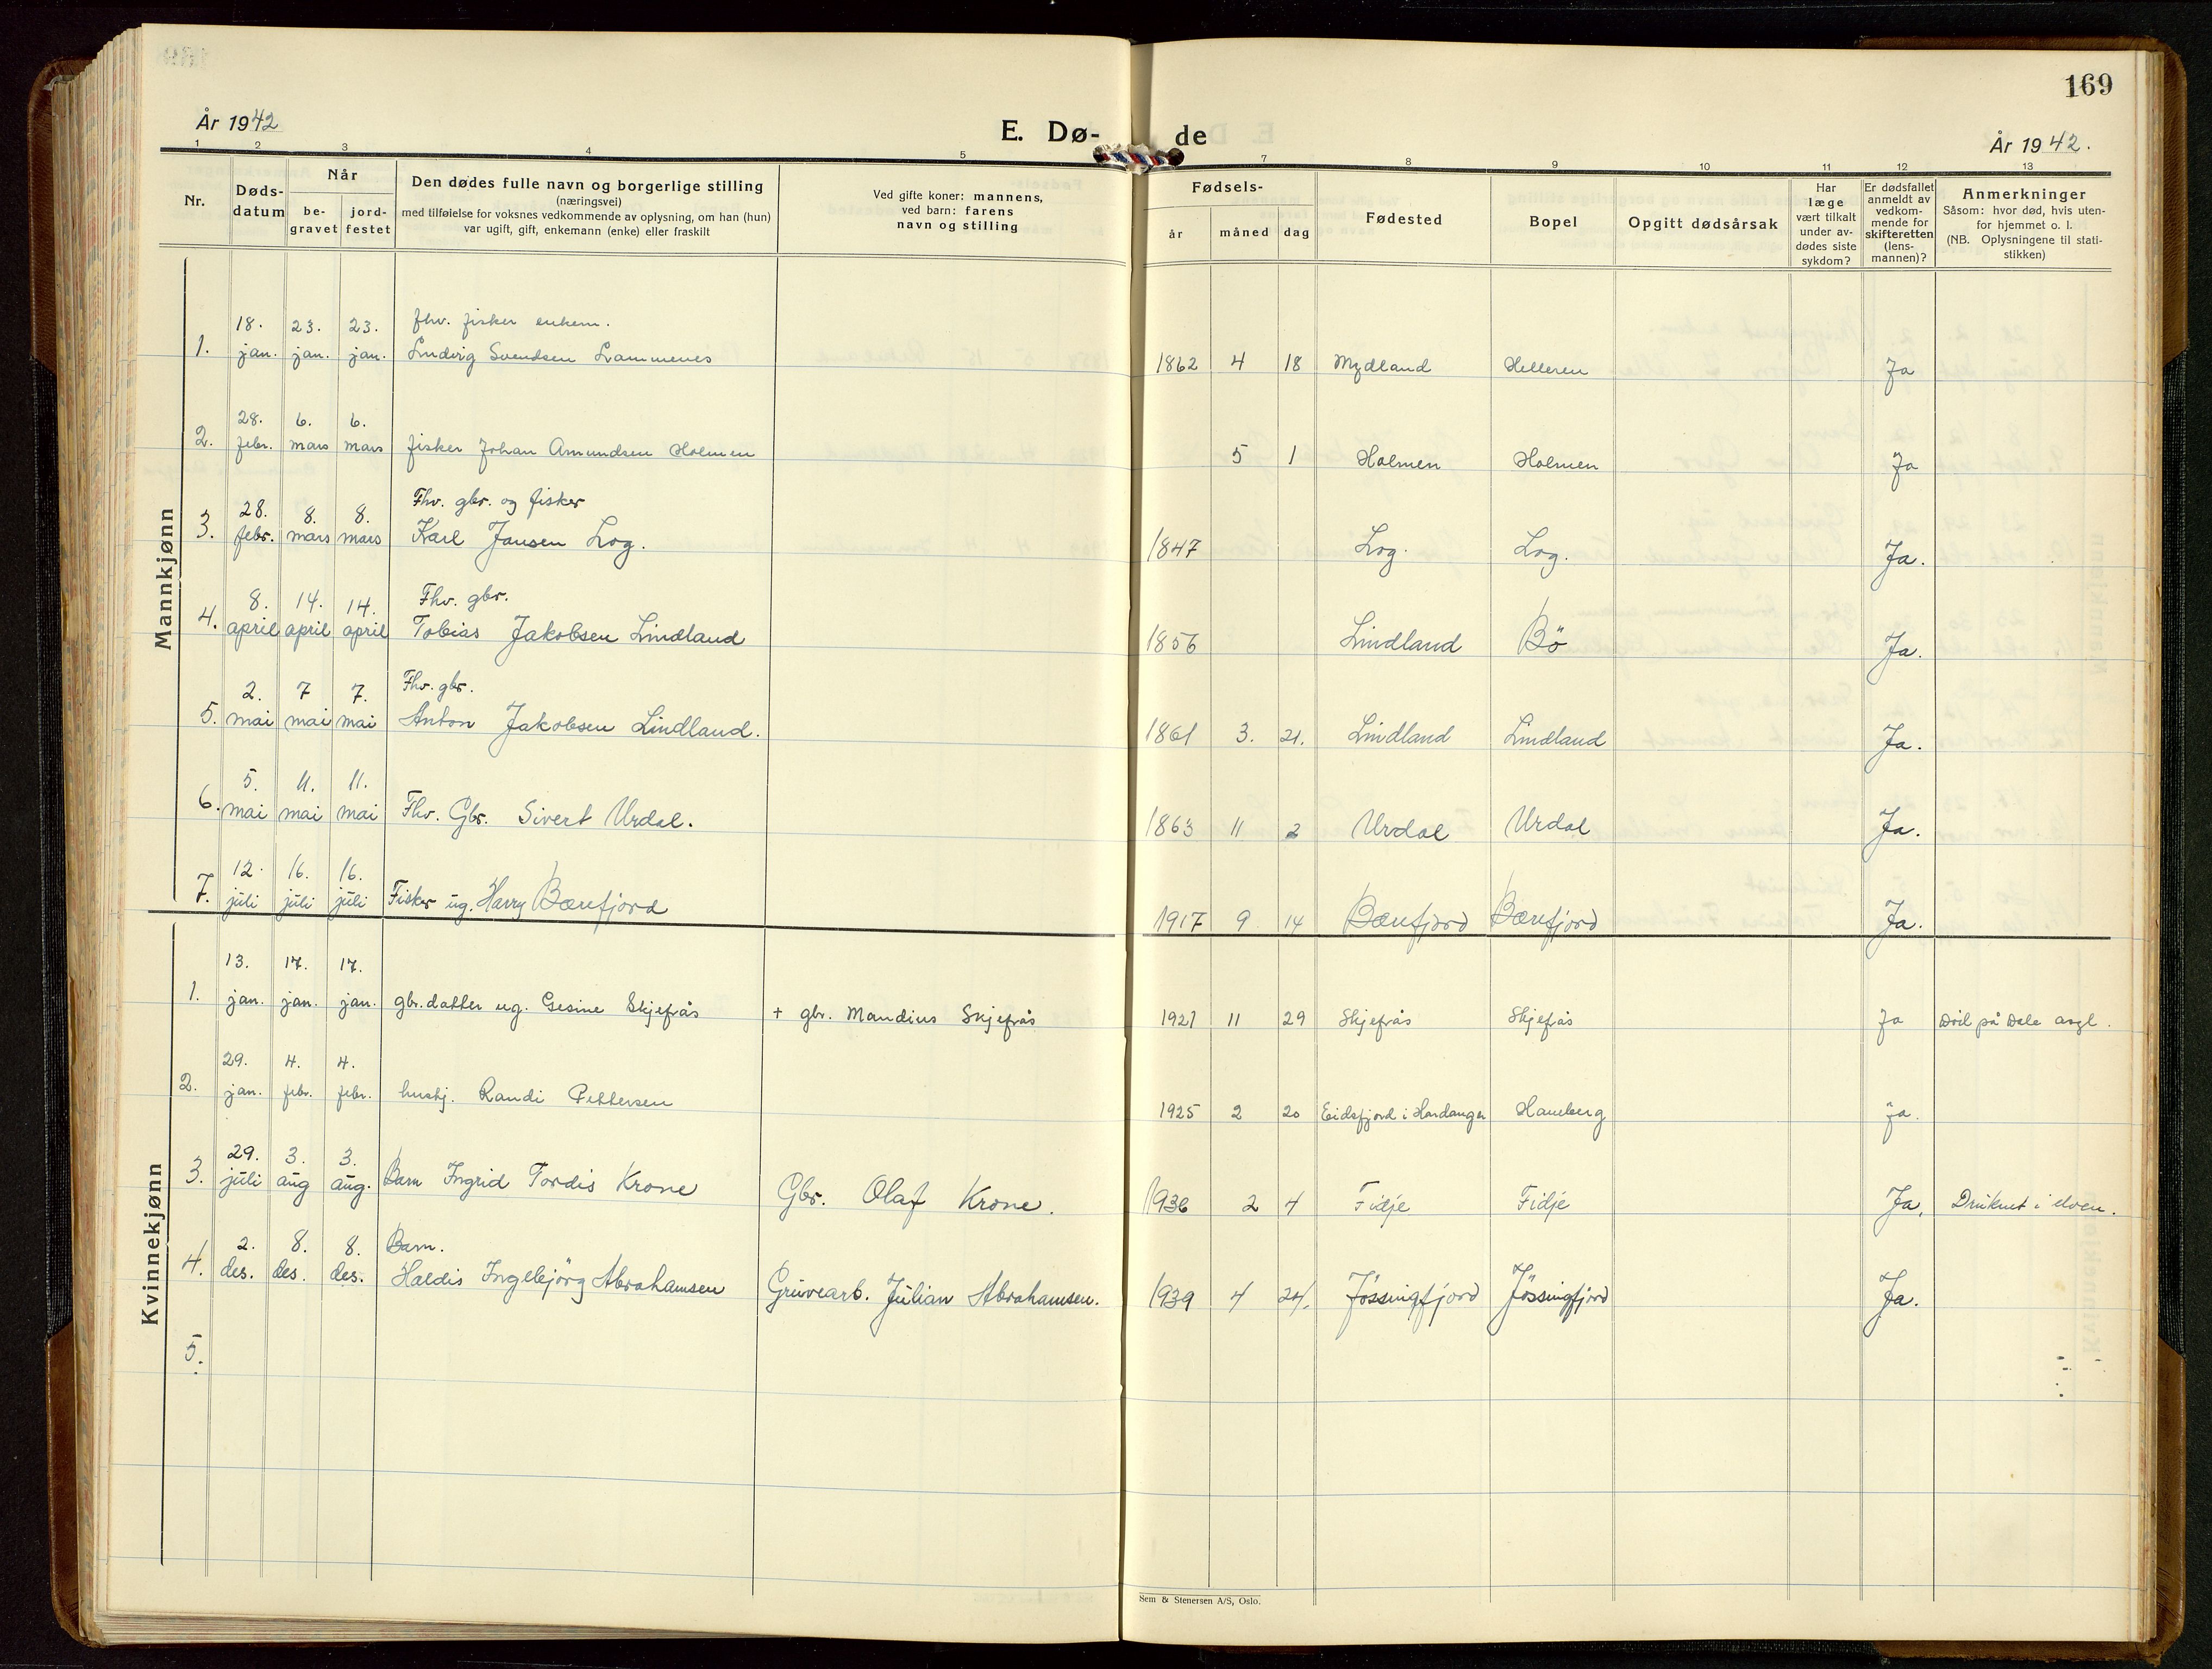 169
År 1942
E. Dø-
de
År 1942.
1 2 3 4 5 7 8 9 10 11 12 13
Nr.
Døds-
datum
Når
be-
gravet
jord-
festet
Den dødes fulle navn og borgerlige stilling
(næringsvei)
med tilføielse for voksnes vedkommende av oplysning, om han (hun)
var ugift, gift, enkemann (enke) eller fraskilt
Ved gifte koner: mannens,
ved barn: farens
navn og stilling
Fødsels-
år måned dag
Fødested
Bopel
Opgitt dødsårsak
Har
læge
vært tilkalt
under av-
dødes siste
sykdom?
Er dødsfallet
anmeldt av
vedkom-
mende for
skifteretten
(lens-
mannen)?
Anmerkninger
Såsom: hvor død, hvis uten-
for hjemmet o. l.
(NB. Oplysningene til stati-
stikken)
Mannkjønn
18. 23. 23. fhv. fisker enkem.
1. jan. jan. jan. Ludvig Svendsen Lammenes 1862 4 18 Mydland Helleren Ja
28. 6. 6.
2. febr. mars mars fisker Johan Amundsen Holmen 5 1 Holmen Holmen Ja
28. 8. 8. Fhv. gbr. og fisker
3. febr. mars mars Karl Jansen Log. 1847 Log. Log. Ja.
8. 14. 14. Fhv. gbr.
4. april april april Tobias Jakobsen Lindland 1856 Lindland Bö Ja.
2. 7 7. Fhv. gbr.
5. mai mai mai Anton Jakobsen Lindland. 1861 3. 21. Lindland Lindland Ja.
5. 11. 11.
6. mai mai mai Fhv. Gbr. Sivert Urdal. 1863 11 2 Urdal Urdal Ja.
12. 16. 16.
7. juli juli juli Fisker ug. Harry Bærefjord 1917 9 14 Bærefjord Bærefjord Ja.
Kvinnekjønn
13. 17. 17.
1. jan. jan. jan. gbr. datter ug. Gesine Skjefrås + gbr. Mandius Skjefrås 1921 11 29 Skjefrås Skjefrås Ja Död på Dale asyl.
29. 4. 4.
2. jan. febr. febr. hushj. Randi Pettersen 1925 2 20 Eidsfjord i Hardanger Haneberg Ja.
29. 3. 3.
3. juli aug aug. Barn Ingrid Tordis Krone Gbr. Olaf Krone. 1936 2 4 Fidje Fidje Ja, Druknet i elven.
2. 8. 8. Barn.
4. des. des. des. Haldis Ingebjörg Abrahamsen Gruvearb. Julian Abrahamsen. 1939 4 24. Jössingfjord Jössingfjord Ja.
5.
Sem & Stenersen A/S, Oslo.